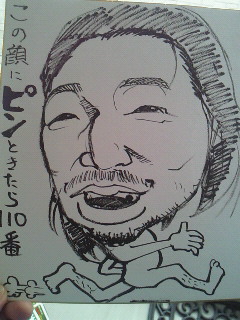 この顔に
ピンときたら
110番